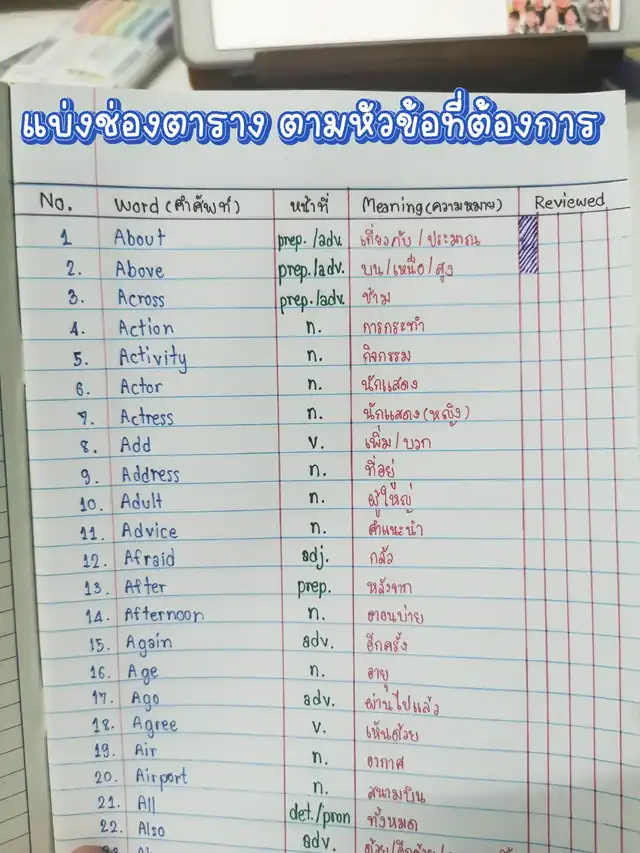 แบ่งช่องตาราง ตามหัวข้อที่ต้องการ
No. Word (คำศัพท์) หน้าที่ Meaning (ความหมาย) Reviewed
1 About prep./adv. เกี่ยวกับ/ประมาณ
2. Above prep./adv. บน/เหนือ/สูง
3. Across prep./adv. ข้าม
4. Action n. การกระทำ
5. Activity n. กิจกรรม
6. Actor n. นักแสดง
7. Actress n. นักแสดง(หญิง)
8. Add v. เพิ่ม/บวก
9. Address n. ที่อยู่
10. Adult n. ผู้ใหญ่
11. Advice n. คำแนะนำ
12. Afraid adj. กลัว
13. After prep. หลังจาก
14. Afternoon n. ตอนบ่าย
15. Again adv. อีกครั้ง
16. Age n. อายุ
17. Ago adv. ผ่านไปแล้ว
18. Agree v. เห็นด้วย
19. Air n. อากาศ
20. Airport n. สนามบิน
21. All det./pron ทั้งหมด
22. Also adv.